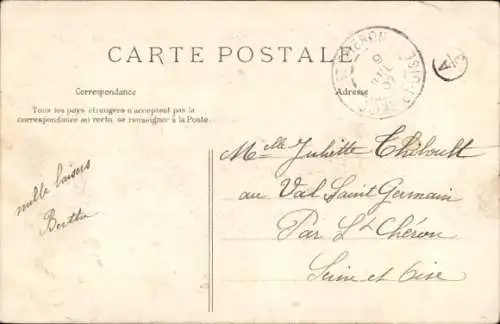 CARTE POSTALE
Correspondance
Tous les pays étrangers n'acceptent pas la
correspondance au recto, se renseigner à la Poste.
Adresse
ST CHERON
9
SEINE-ET-OISE
A
Melle Juliette Thiboult
au Val Saint Germain
Par St Chéron
Seine et Oise
mille baisers
Berthe